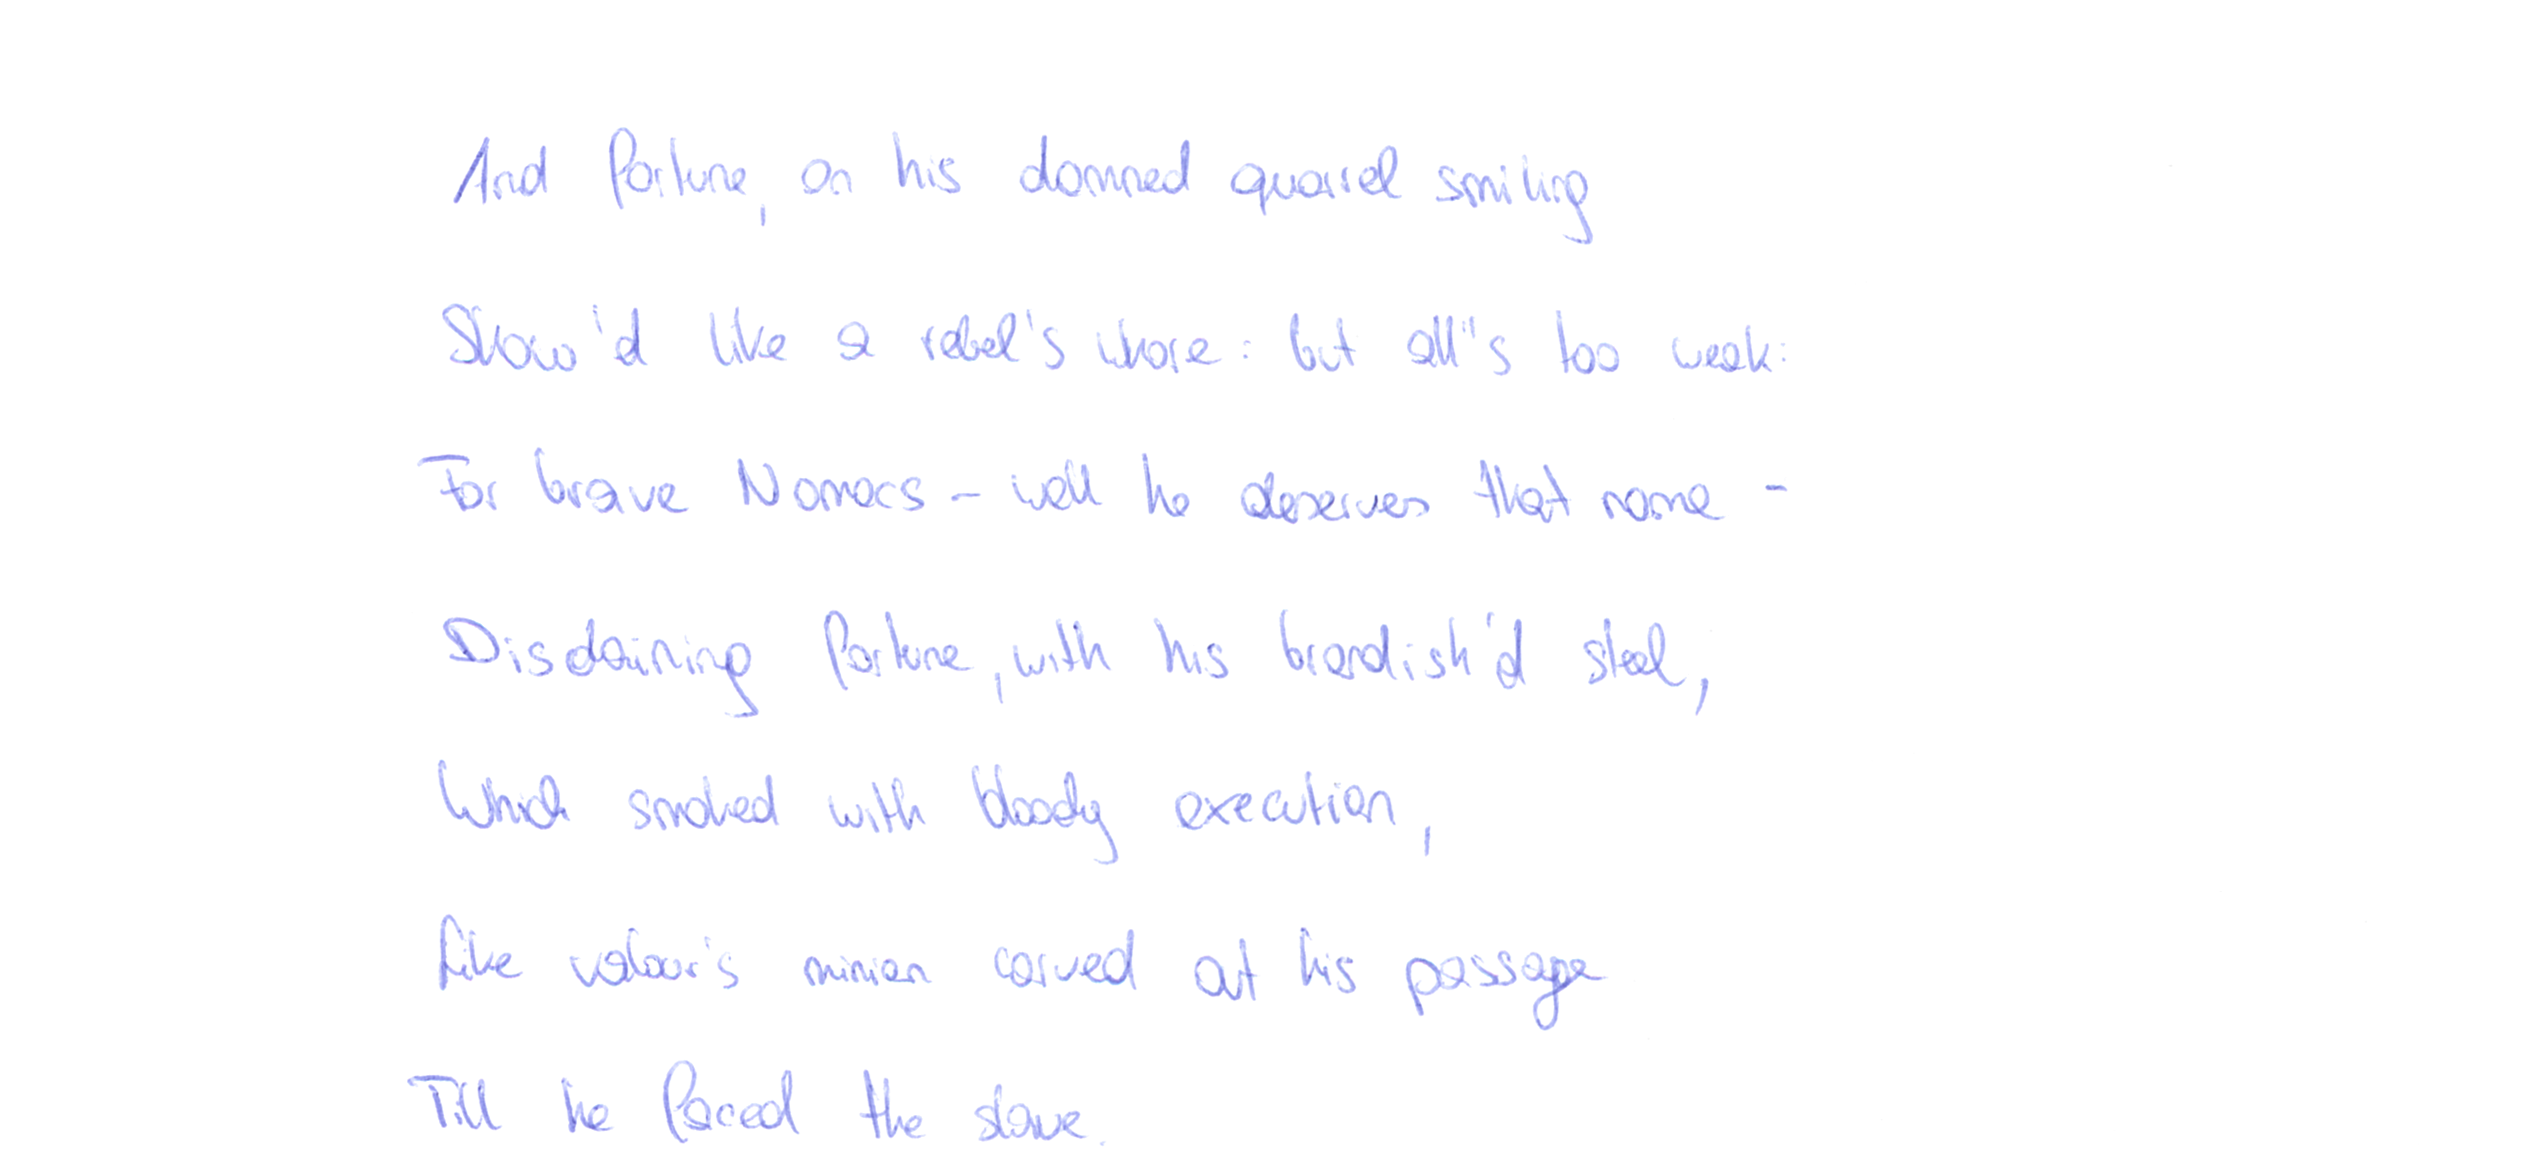 And fortune, on his damned quarrel smiling
Show'd like a rebel's whore: but all"s too weak:
For brave Nomacs - well he deserves that name -
Disdaining fortune, with his brandish'd steel,
Which smoked with bloody execution,
Like valour's minion carved out his passage
Till he faced the slave.